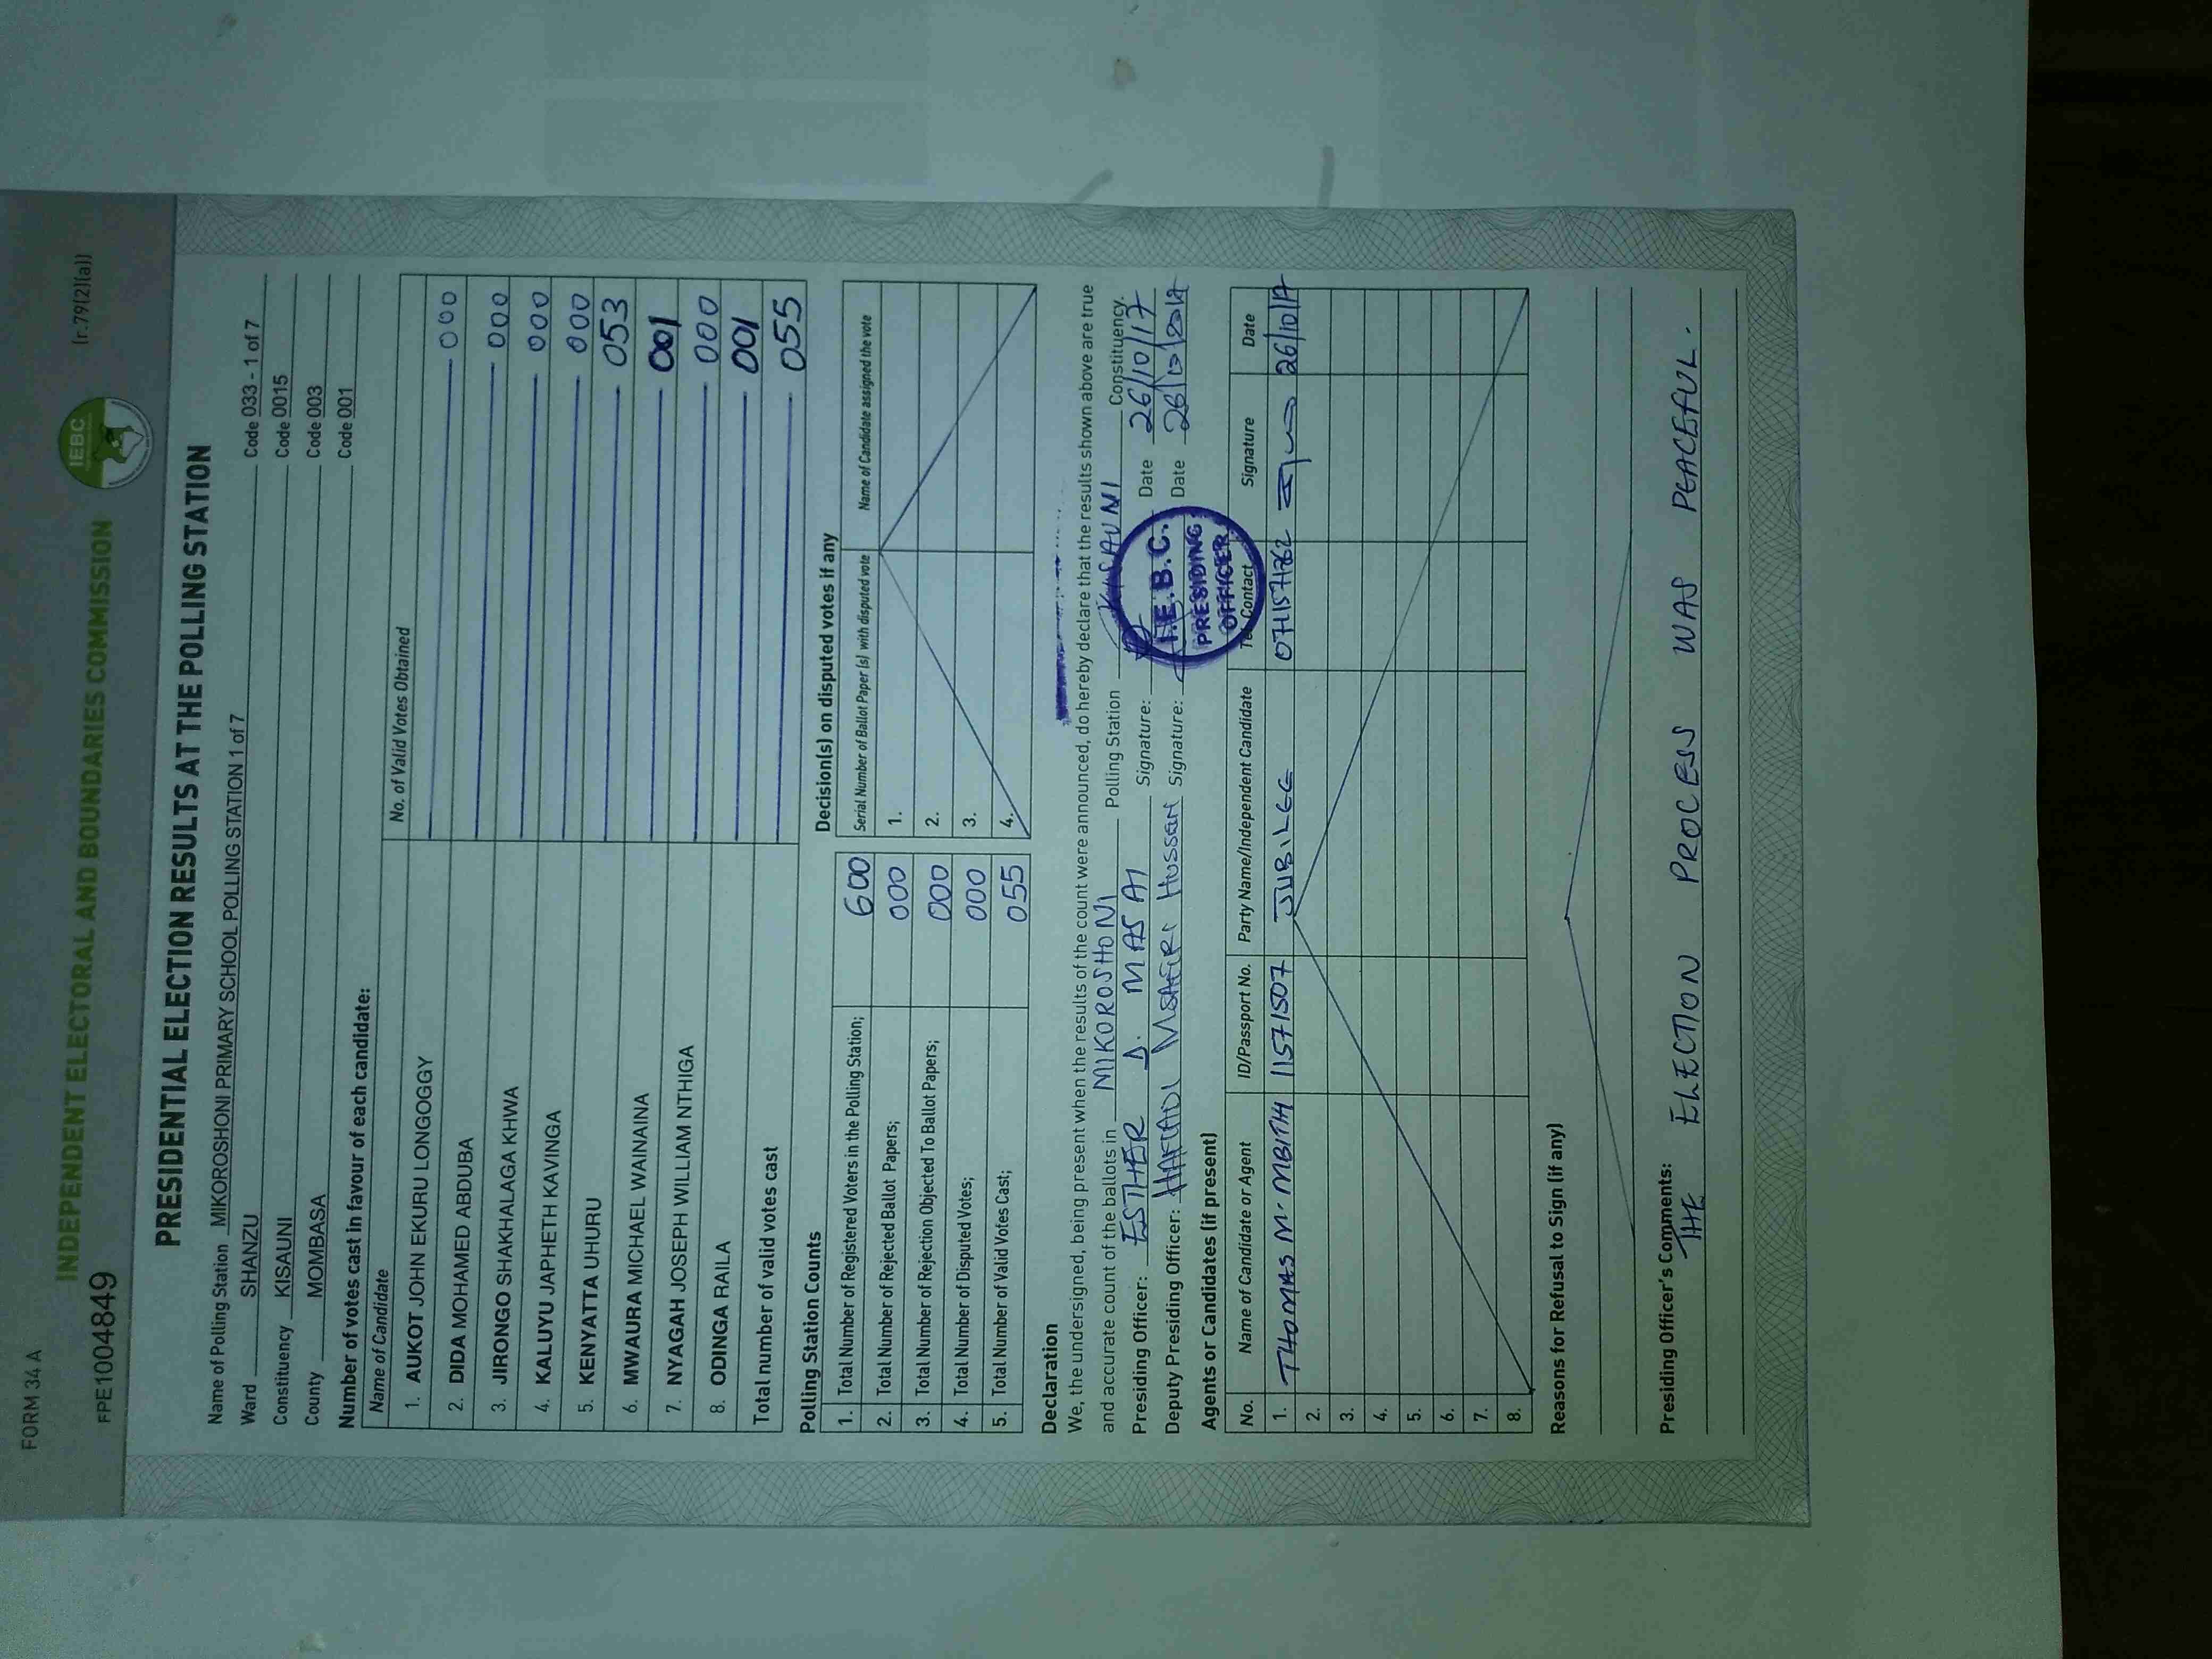 FORM 34 A
(r.79(2)(a))
IEBC
INDEPENDENT ELECTORAL AND BOUNDARIES COMMISSION
FPE1004849
PRESIDENTIAL ELECTION RESULTS AT THE POLLING STATION
Name of Polling Station MIKOROSHONI PRIMARY SCHOOL POLLING STATION 1 of 7
Ward SHANZU Code 033 - 1 of 7
Constituency KISAUNI Code 0015
County MOMBASA Code 003
Code 001
Number of votes cast in favour of each candidate:
Name of Candidate No. of Valid Votes Obtained
1. AUKOT JOHN EKURU LONGOGGY 000
2. DIDA MOHAMED ABDUBA 000
3. JIRONGO SHAKHALAGA KHWA 000
4. KALUYU JAPHETH KAVINGA 000
5. KENYATTA UHURU 053
6. MWAURA MICHAEL WAINAINA 001
7. NYAGAH JOSEPH WILLIAM NTHIGA 000
8. ODINGA RAILA 001
Total number of valid votes cast 055
Polling Station Counts
1. Total Number of Registered Voters in the Polling Station; 600
2. Total Number of Rejected Ballot Papers; 000
3. Total Number of Rejection Objected To Ballot Papers; 000
4. Total Number of Disputed Votes; 000
5. Total Number of Valid Votes Cast; 055
Decision(s) on disputed votes if any
Serial Number of Ballot Paper (s) with disputed vote Name of Candidate assigned the vote
1.
2.
3.
4.
Declaration
We, the undersigned, being present when the results of the count were announced, do hereby declare that the results shown above are true
and accurate count of the ballots in MIKOROSHONI Polling Station KISAUNI Constituency.
Presiding Officer: ESTHER D. MASAI Signature: Date 26/10/17
Deputy Presiding Officer: Hussen Signature: Date 26/10/2017
I.E.B.C.
PRESIDING
OFFICER
Agents or Candidates (if present)
No. Name of Candidate or Agent ID/Passport No. Party Name/Independent Candidate Contact Signature Date
1. THOMAS M. MBITHI 11571507 JUBILEE 0711571262 26/10/17
2.
3.
4.
5.
6.
7.
8.
Reasons for Refusal to Sign (if any)
Presiding Officer's Comments:
THE ELECTION PROCESS WAS PEACEFUL.